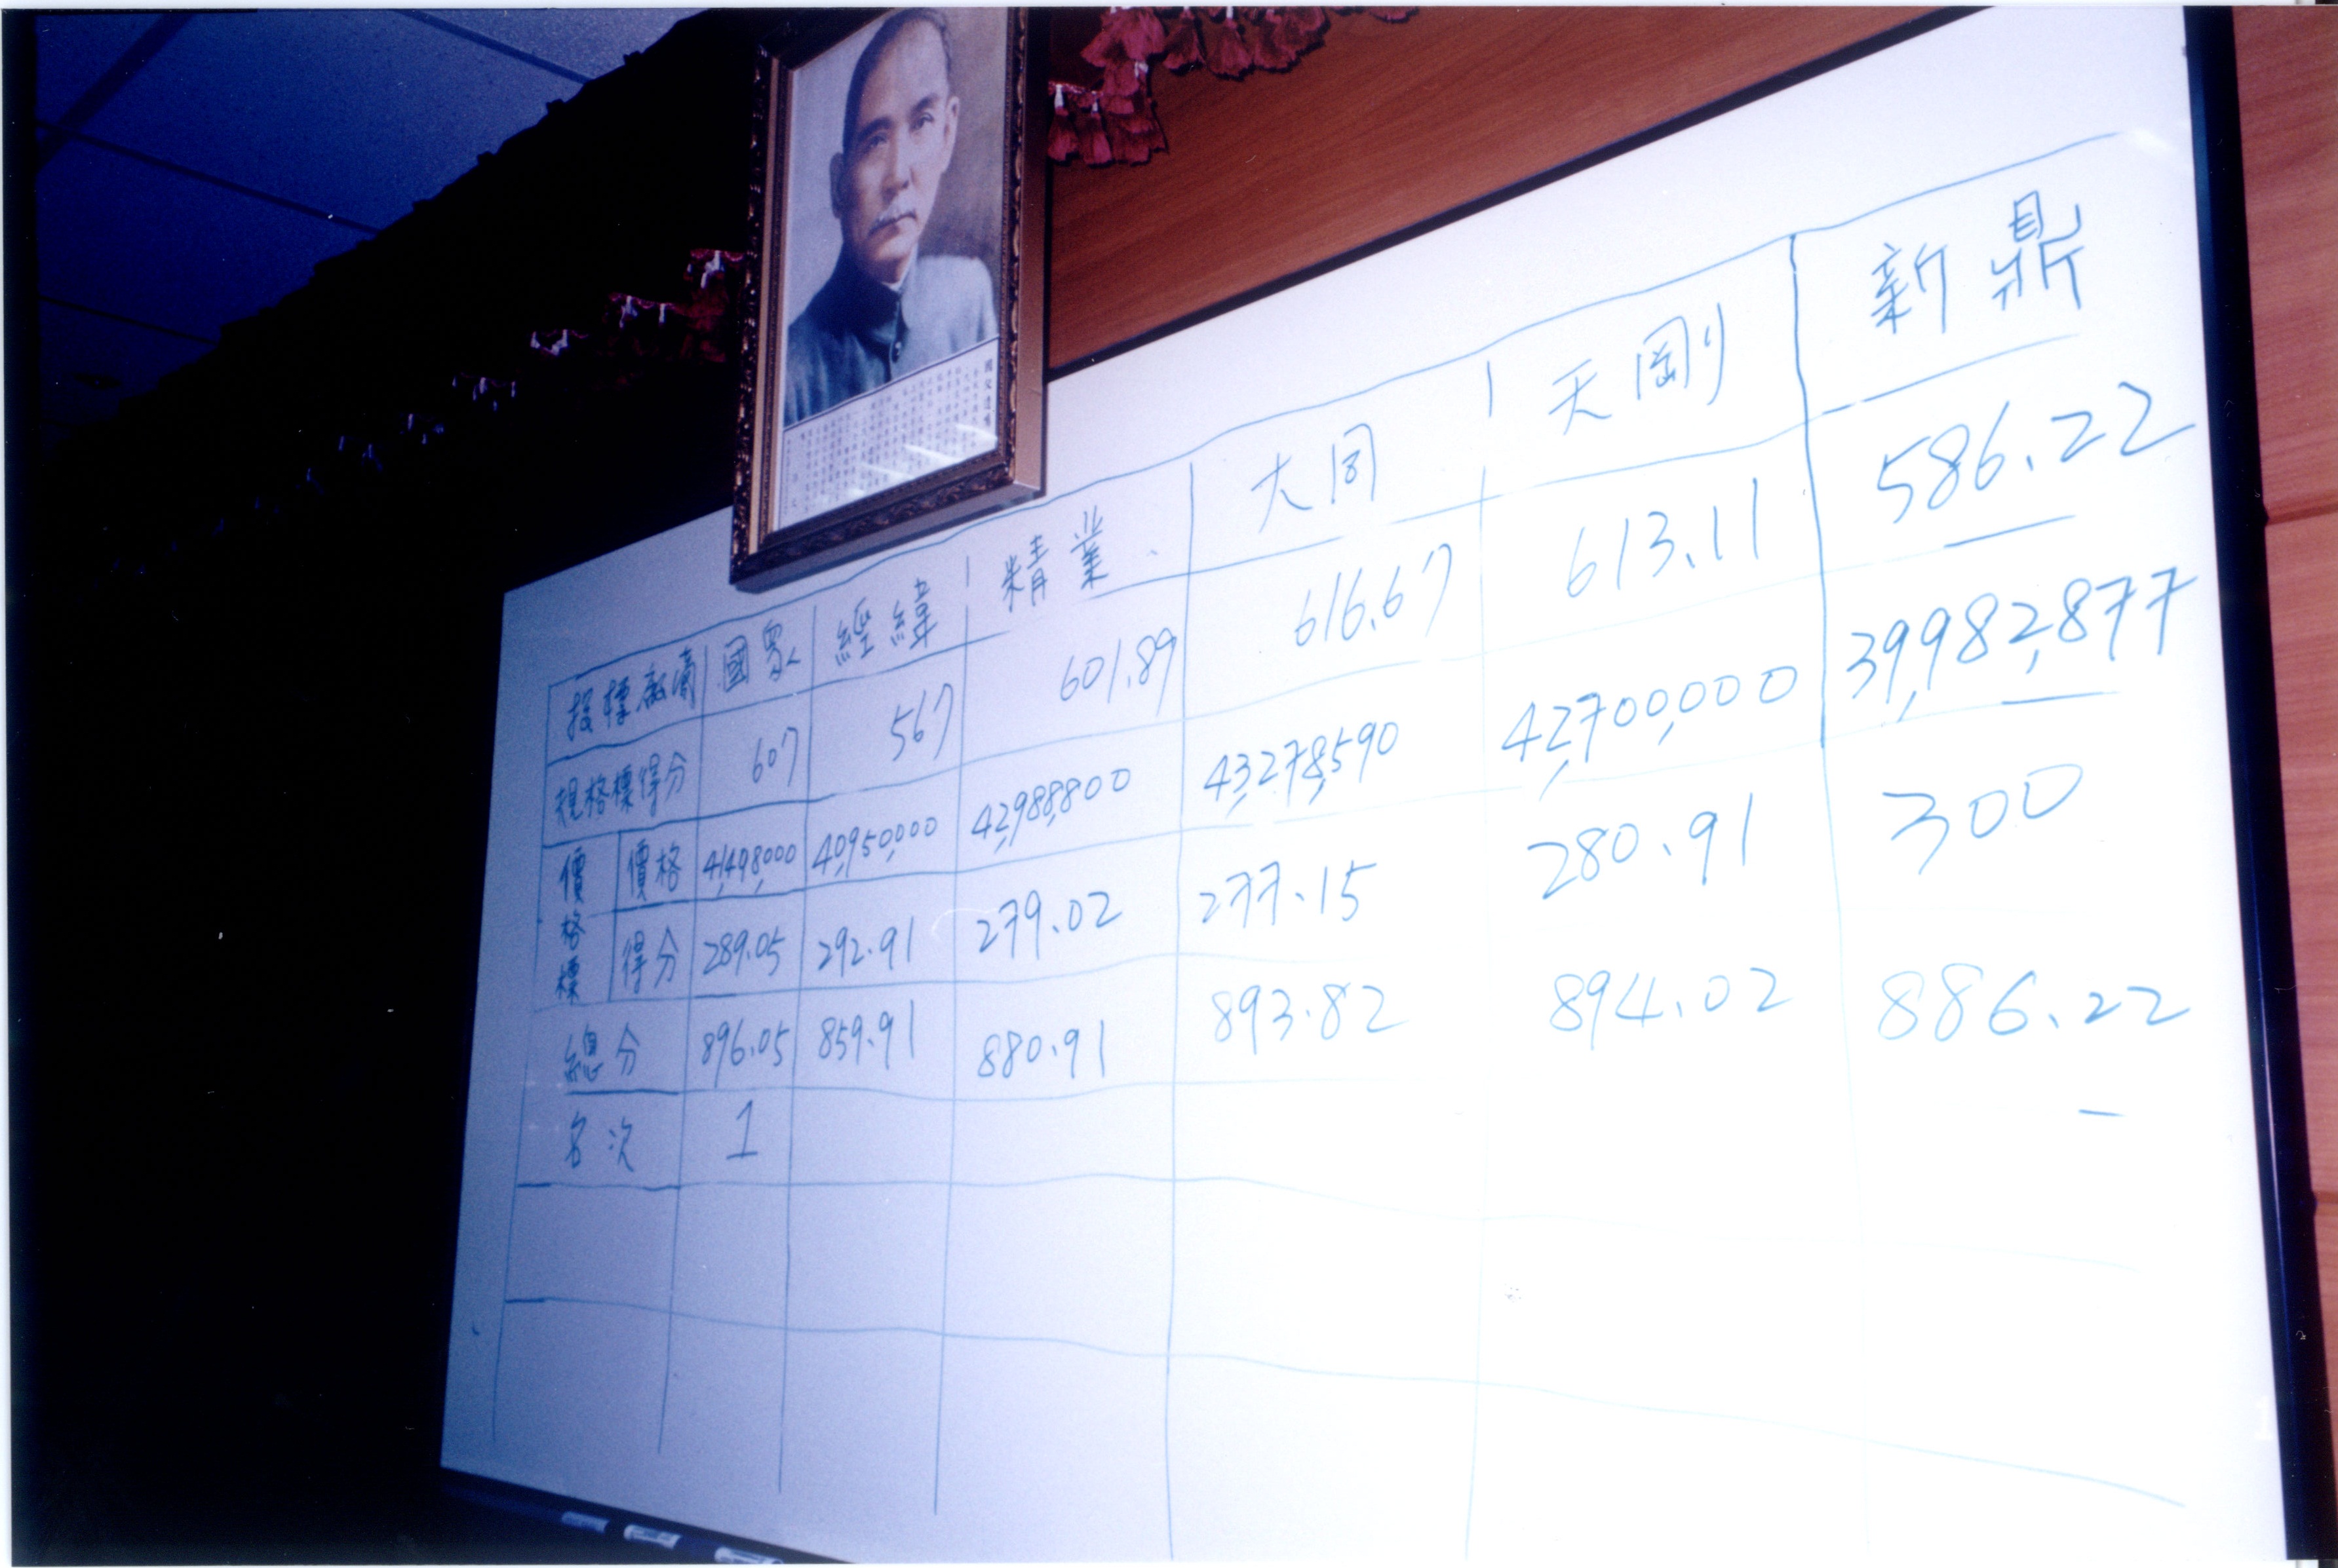 投標廠商 國眾 經緯 精業 大同 天剛 新鼎
規格標得分 607 567 601.89 616.67 613.11 586.22
價格標 價格 41,498,000 40,950,000 42,988,800 43,278,590 42,700,000 39,982,877
得分 289.05 292.91 279.02 277.15 280.91 300
總分 896.05 859.91 880.91 893.82 894.02 886.22
名次 1